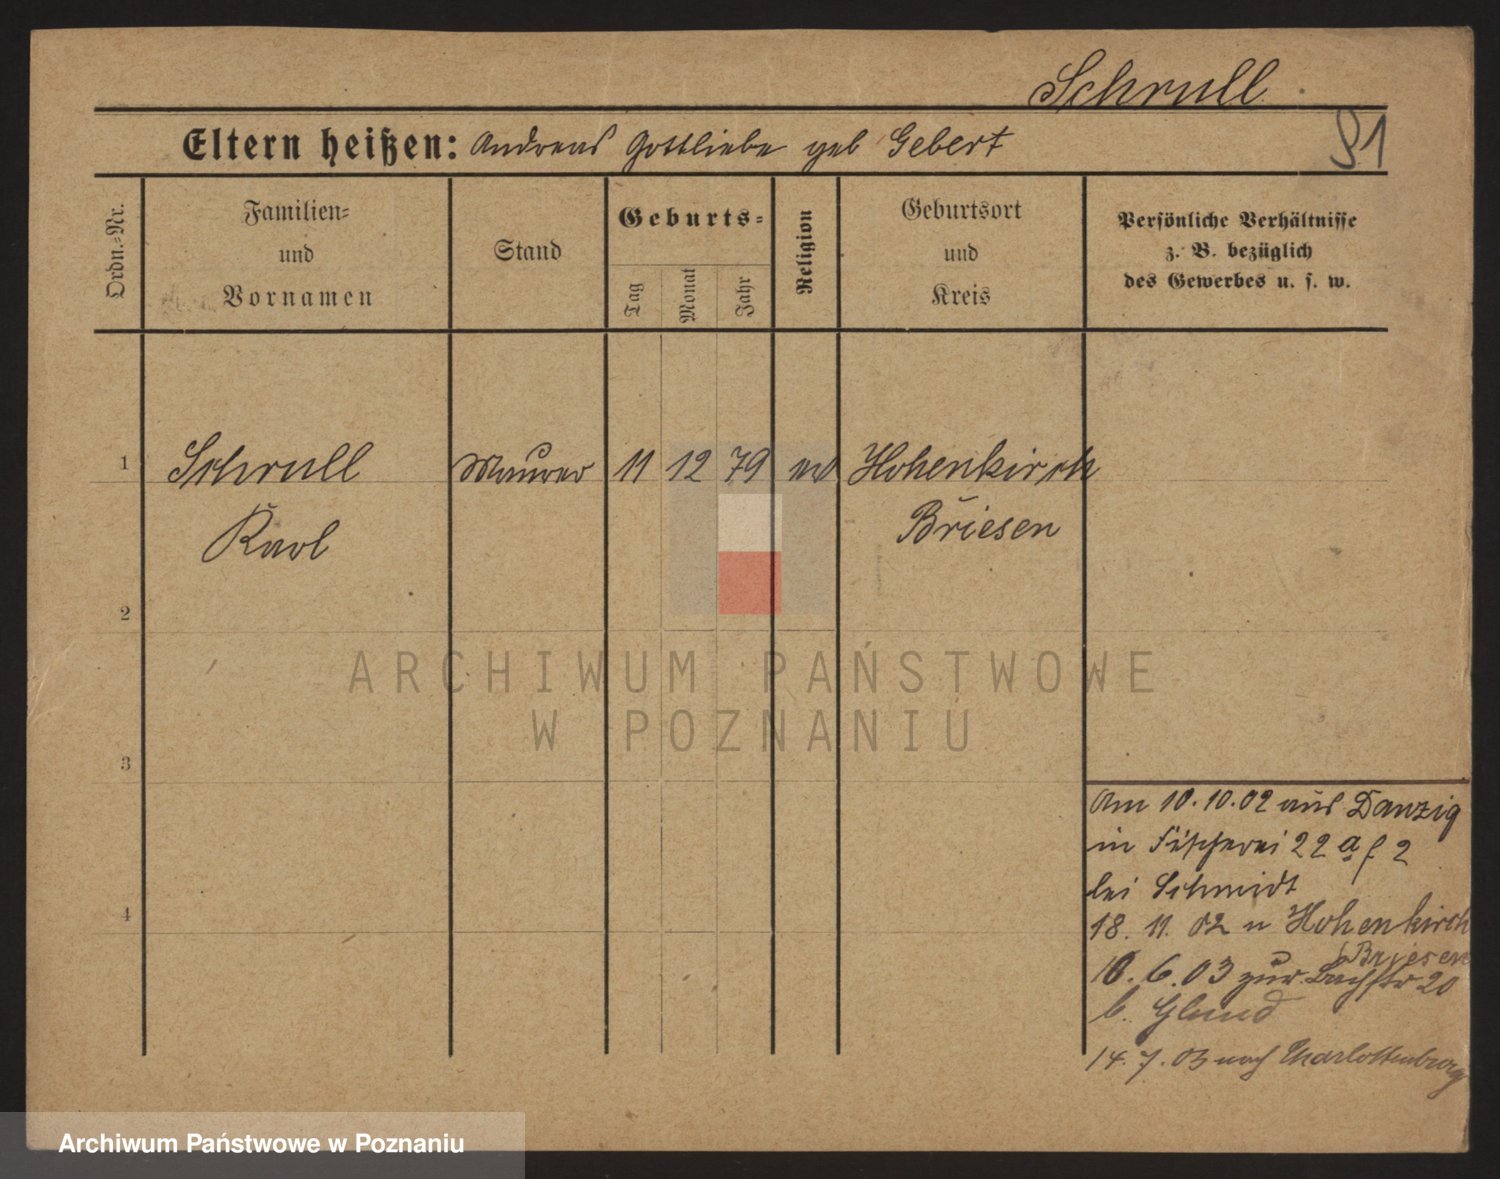 Schrull
91
Eltern heißen: Andreas Gottliebe geb Gebert
Ordn.-Nr.
Familien-
und
Vornamen
Stand
Geburts-
Tag
Monat
Jahr
Religion
Geburtsort
und
Kreis
Persönliche Verhältnisse
z. B. bezüglich
des Gewerbes u. s. w.
1 Schrull Maurer 11 12 79 ev Hohenkirch
Karl Briesen
2
3
4
ARCHIWUM PAŃSTWOWE
W POZNANIU
Am 10.10.02 aus Danzig
in Fischerei 22 a f 2
bei Schmidt
18. 11. 02 n Hohenkirch
Briesen
10. 6. 03 zur. Bachstr 20
b.
14. 7. 03 nach Charlottenburg
Archiwum Państwowe w Poznaniu